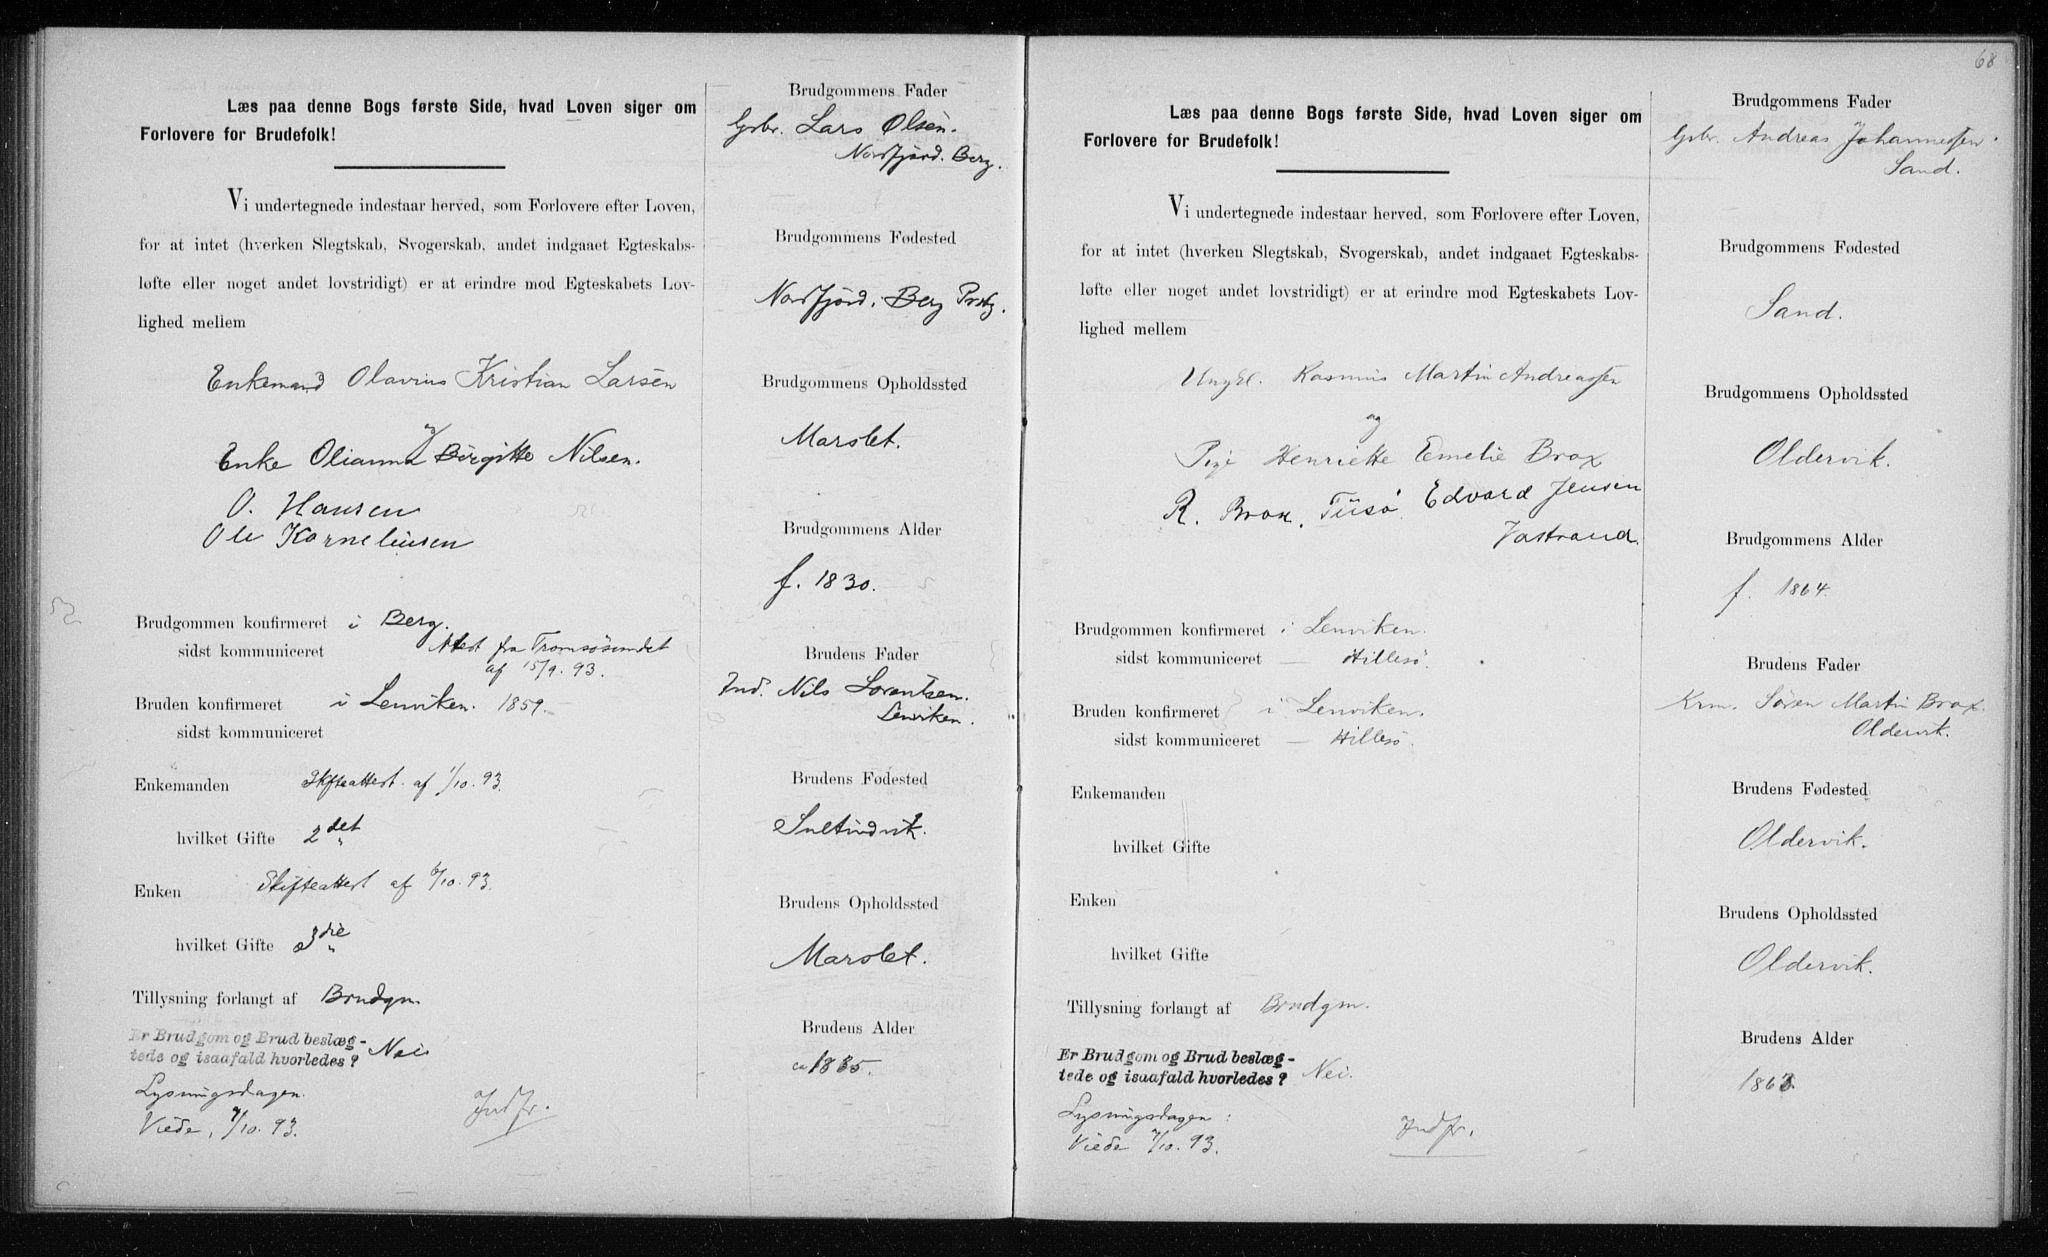 Læs paa denne Bogs første Side, hvad Loven siger om
Forlovere for Brudefolk!
Vi undertegnede indestaar herved, som Forlovere efter Loven,
for at intet (hverken Slegtskab, Svogerskab, andet indgaaet Egteskabs-
løfte eller noget andet lovstridigt) er at erindre mod Egteskabets Lov-
lighed mellem
Enkemand Olavius Kristian Larsen
og
Enke Olianna Birgitte Nilsen.
O. Hansen
Ole Korneliusen
Brudgommen konfirmeret i Berg.
sidst kommuniceret Attest fra Tromsøsundet
af 15/9. 93.
Bruden konfirmeret i Lenviken. 1859.
sidst kommuniceret
Enkemanden Skifteattest af 1/10. 93.
hvilket Gifte 2det
Enken Skifteattest af 6/10. 93.
hvilket Gifte 3die
Tillysning forlangt af Brudgm.
Er Brudgom og Brud beslæg-
tede og isaafald hvorledes? Nei
Lysningsdagen.
Viede, 7/10. 93. Indfr.
Brudgommens Fader
Gbr. Lars Olsen.
Nordfjord. Berg.
Brudgommens Fødested
Nordfjord. Berg Prstg.
Brudgommens Opholdssted
Marslet.
Brudgommens Alder
f. 1830.
Brudens Fader
Ind. Nils Lorentsen.
Lenviken.
Brudens Fødested
Sultindvik.
Brudens Opholdssted
Marslet.
Brudens Alder
ca 1835.
68
Læs paa denne Bogs første Side, hvad Loven siger om
Forlovere for Brudefolk!
Vi undertegnede indestaar herved, som Forlovere efter Loven,
for at intet (hverken Slegtskab, Svogerskab, andet indgaaet Egteskabs-
løfte eller noget andet lovstridigt) er at erindre mod Egteskabets Lov-
lighed mellem
Ungkl. Rasmus Martin Andreassen
og
Pige Henriette Emelie Brox
R. Brox, Tüsø. Edvard Jensen
Jøstrand.
Brudgommen konfirmeret i Lenviken.
sidst kommuniceret — Hillesø.
Bruden konfirmeret i Lenviken.
sidst kommuniceret — Hillesø.
Enkemanden
hvilket Gifte
Enken
hvilket Gifte
Tillysning forlangt af Brudgm.
Er Brudgom og Brud beslæg-
tede og isaafald hvorledes? Nei.
Lysningsdagen:
Viede 7/10. 93. Indfr.
Brudgommens Fader
Gbr. Andreas Johannessen.
Sand.
Brudgommens Fødested
Sand.
Brudgommens Opholdssted
Oldervik.
Brudgommens Alder
f. 1864.
Brudens Fader
Krm. Søren Martin Brox.
Oldervik.
Brudens Fødested
Oldervik.
Brudens Opholdssted
Oldervik.
Brudens Alder
1863.